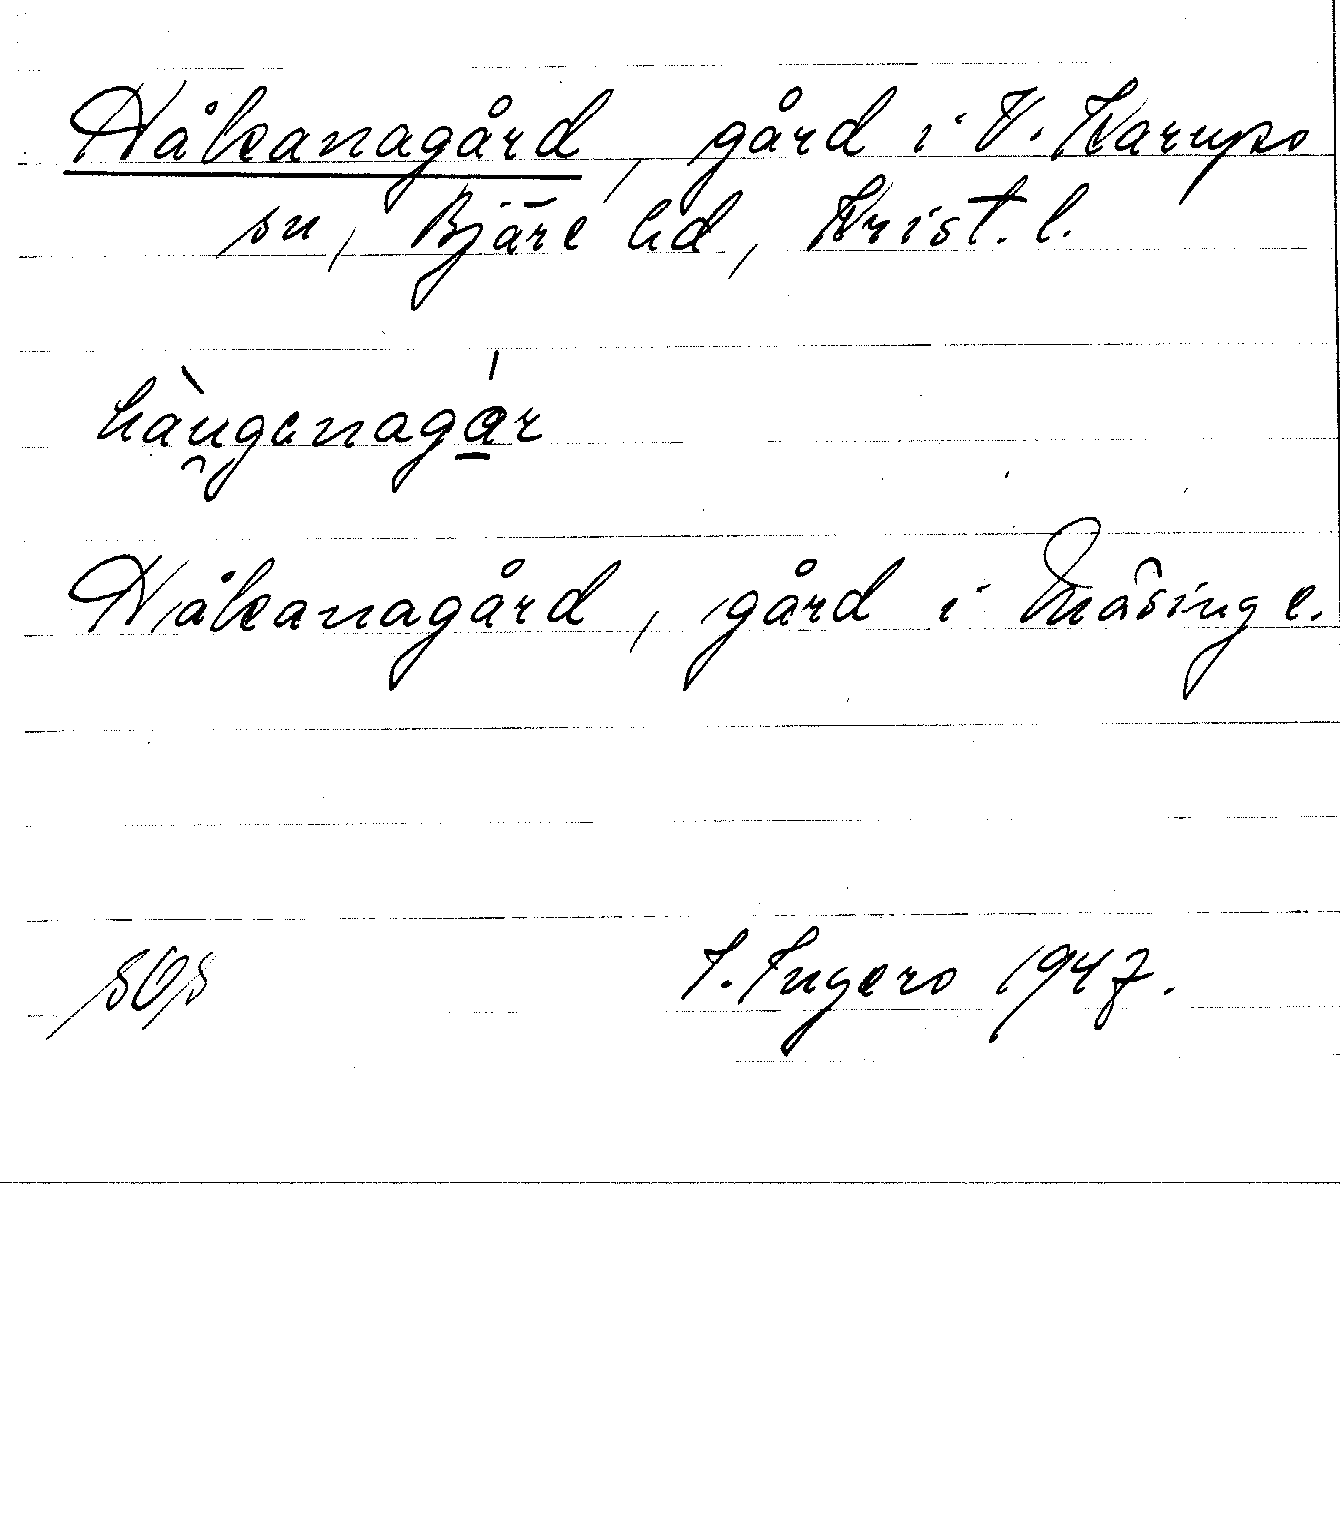 Håkanagård, gård i V. Karups
sn, Bjäre hd, Krist. l.
hàu̯ganagár
Håkanagård, gård i Mäsinge.
SOS
I. Ingers 1947.